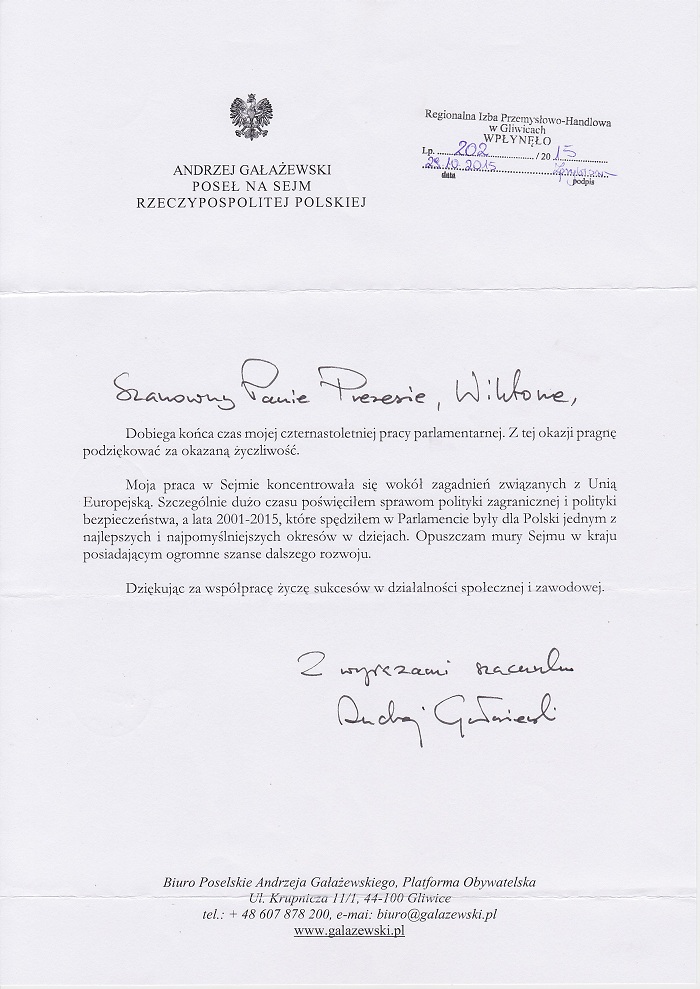 Regionalna Izba Przemysłowo-Handlowa
w Gliwicach
WPŁYNĘŁO
Lp. 202 / 20 15
29.10.2015
data podpis
ANDRZEJ GAŁAŻEWSKI
POSEŁ NA SEJM
RZECZYPOSPOLITEJ POLSKIEJ
Szanowny Panie Prezesie, Wiktorze,
Dobiega końca czas mojej czternastoletniej pracy parlamentarnej. Z tej okazji pragnę
podziękować za okazaną życzliwość.
Moja praca w Sejmie koncentrowała się wokół zagadnień związanych z Unią
Europejską. Szczególnie dużo czasu poświęciłem sprawom polityki zagranicznej i polityki
bezpieczeństwa, a lata 2001-2015, które spędziłem w Parlamencie były dla Polski jednym z
najlepszych i najpomyślniejszych okresów w dziejach. Opuszczam mury Sejmu w kraju
posiadającym ogromne szanse dalszego rozwoju.
Dziękując za współpracę życzę sukcesów w działalności społecznej i zawodowej.
Z wyrazami szacunku
Andrzej Gałażewski
Biuro Poselskie Andrzeja Gałażewskiego, Platforma Obywatelska
Ul. Krupnicza 11/1, 44-100 Gliwice
tel.: + 48 607 878 200, e-mai: biuro@galazewski.pl
www.galazewski.pl